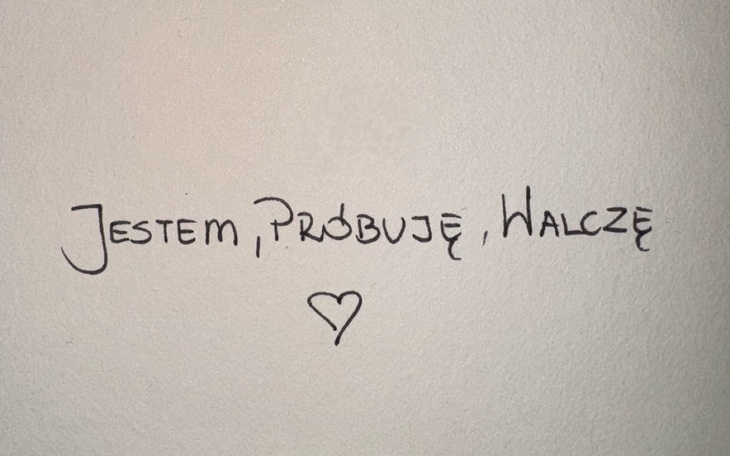 Jestem, Próbuję, Walczę